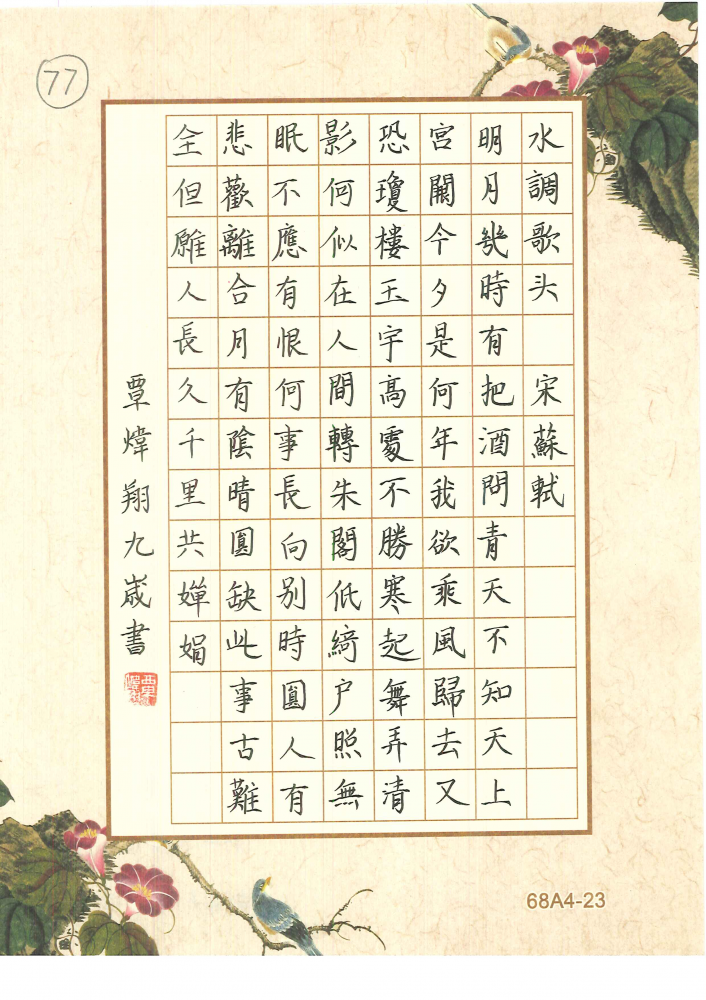 77
水調歌头 宋蘇軾
明月幾時有把酒問青天不知天上
宮闕今夕是何年我欲乘風歸去又
恐瓊樓玉宇高處不勝寒起舞弄清
影何似在人間轉朱閣低綺户照無
眠不應有恨何事長向别時圓人有
悲歡離合月有陰晴圓缺此事古難
全但願人長久千里共嬋娟
覃煒翔九歲書
68A4-23